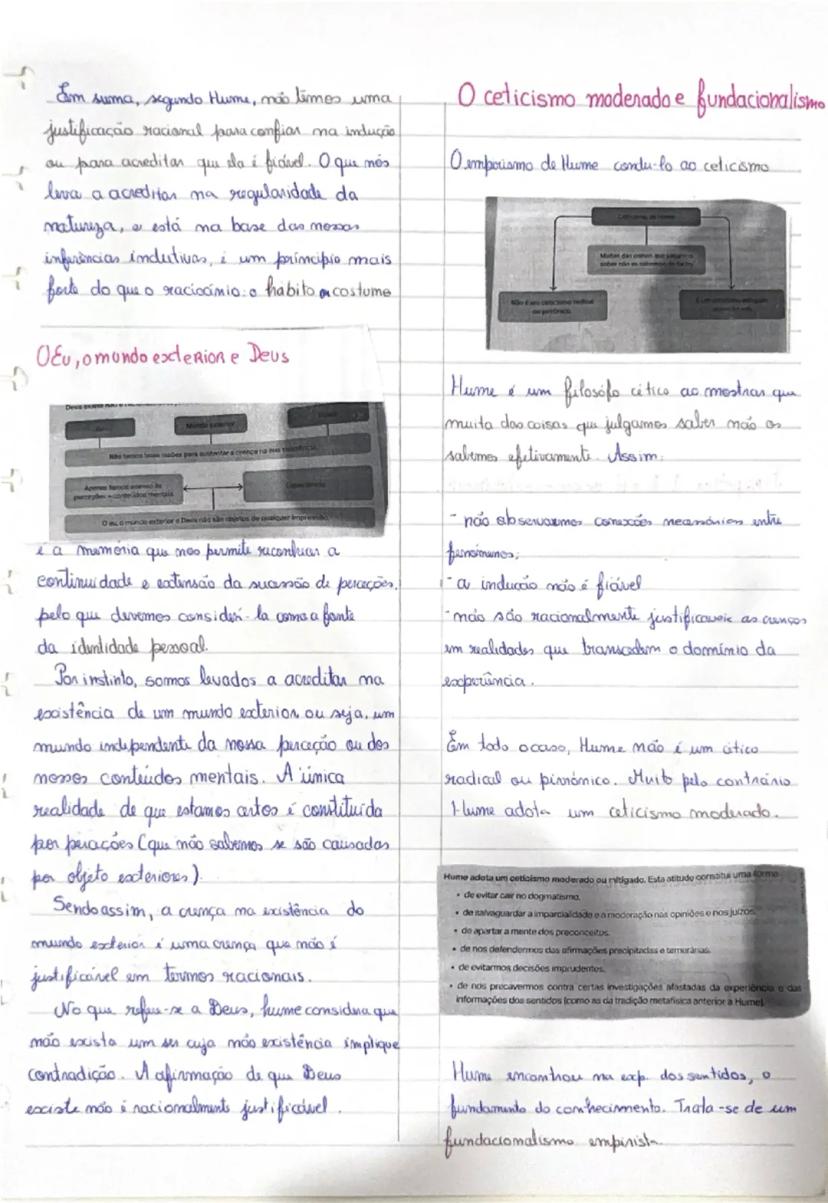 Em suma, segundo Hume, não temos uma
justificação racional para confiar na indução
ou para acreditar que ela é fiável. O que nos
leva a acreditar na regularidade da
natureza, e está na base das nossas
inferências indutivas, é um príncipio mais
forte do que o raciocínio: o hábito ou costume
O Eu, o mundo exterior e Deus
Mundo exterior
Não temos boas razões para sustentar a crença na sua existência.
Apenas temos acesso às
perceções – conteúdos mentais.
O eu, o mundo exterior e Deus não são objetos de qualquer impressão.
é a memória que nos permite reconhecer a
continuidade e extensão da sucessão de perceções,
pelo que devemos considerá-la como a fonte
da identidade pessoal.
Por instinto, somos levados a acreditar na
existência de um mundo exterior ou seja, um
mundo independente da nossa perceção ou dos
nossos conteúdos mentais. A única
realidade de que estamos certos é constituída
por perceções (que não sabemos se são causadas
por objeto exteriores).
Sendo assim, a crença na existência do
mundo exterior é uma crença que não é
justificável em termos racionais.
No que refere-se a Deus, hume considera que
não exista um ser cuja não existência implique
contradição. A afirmação de que Deus
existe não é racionalmente justificável.
O ceticismo moderado e fundacionalismo
O empirismo de Hume condu-lo ao ceticismo
Ceticismo de Hume
Muitas das coisas que julgamos
saber não as sabemos de facto.
Não é um ceticismo radical
ou pirrónico.
É um ceticismo mitigado
Hume é um filosófo cético ao mostrar que
muita das coisas que julgamos saber não as
sabemos efetivamente. Assim:
- não observarmos conexões necessárias entre
fenómenos;
- a indução não é fiável
- não são racionalmente justificáveis as crenças
em realidades que transcedem o domínio da
experiência.
Em todo o caso, Hume não é um cético
radical ou pirrónico. Muito pelo contrário
Hume adota um ceticismo moderado.
Hume adota um ceticismo moderado ou mitigado. Esta atitude constitui uma forma
• de evitar cair no dogmatismo.
• de salvaguardar a imparcialidade e a moderação nas opiniões e nos juízos.
• de apartar a mente dos preconceitos.
• de nos defendermos das afirmações precipitadas e temerárias.
• de evitarmos decisões imprudentes.
• de nos precavermos contra certas investigações afastadas da experiência e das
informações dos sentidos (como as da tradição metafísica anterior a Hume).
Hume encontrou na exp. dos sentidos, o
fundamento do conhecimento. Trata-se de um
fundacionalismo empirista